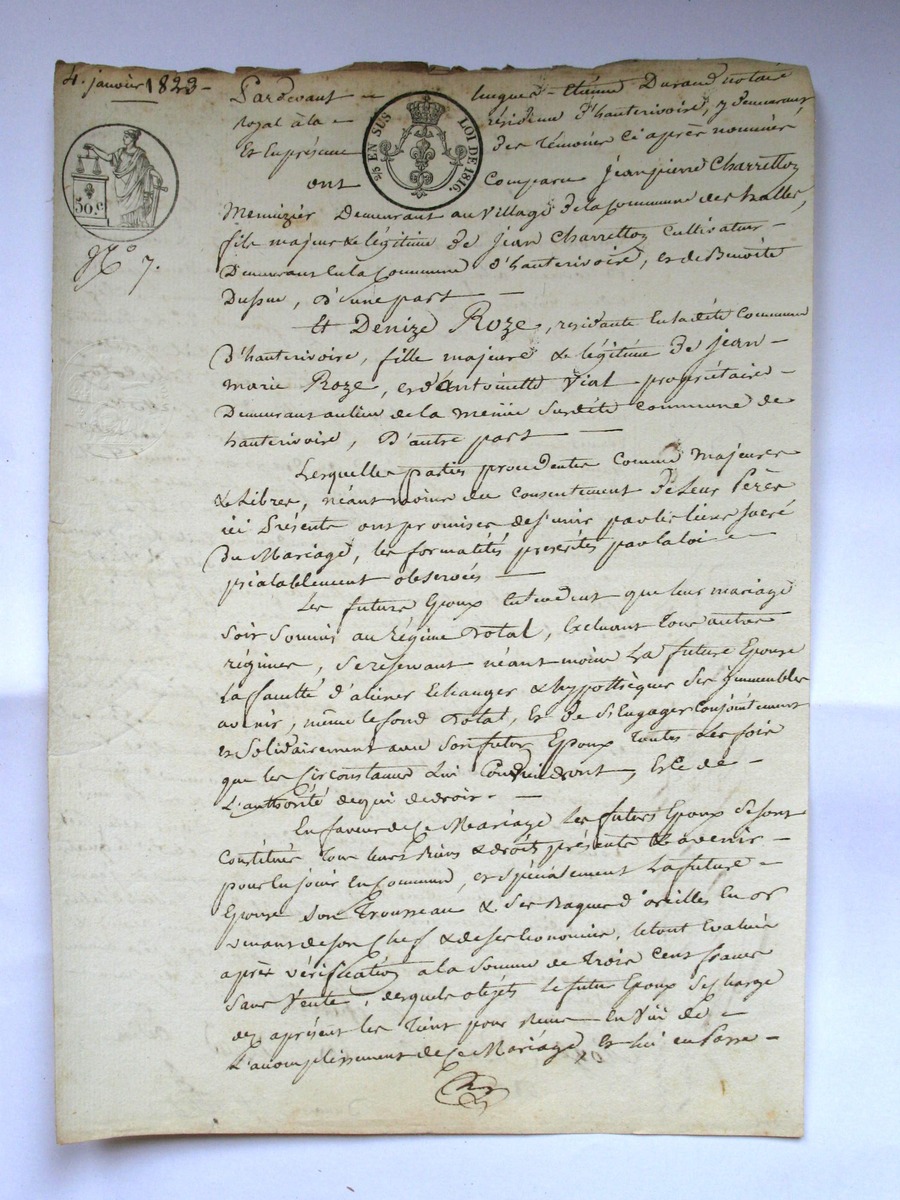 4. janvier 1823 -
Pardevant - Etienne Durand notaire
royal à la - résidence d'hauterivoire, y demeurant
Et En présence des témoins Ci après nommés
25 EN SUS LOI DE 1816.
50.c
N° 7.
ont Comparu Jean pierre Charretton
Menuizier Demeurant au Village de la Commune des halles,
fils majeur & légitime de Jean Charretton Cultivateur -
Demeurant En la Commune d'hauterivoire, et de Benoite
Dussuc, D'une part -
Et Denize Roze, residante En la dite Commune
D'hauterivoire, fille majeure & légitime de jean -
marie Roze, et d'Antoinette Vial propriétaire -
Demeurant au lieu de la Susdite Commune de
hauterivoire, D'autre part -
Lesquelles parties procedentes Comme Majeures
& Libres, néant moins du Consentement De Leurs Pères
ici Présents ont promises de s'unir par les liens sacré
Du Mariage, les formalités prescrites par la loi -
préalablement observées -
Les futurs Epoux Entendent que leur mariage
soit soumis au Régime Dotal, Excluant Tous autres
régimes, se réservant néant moins La future Epouse
La faculté d'aliéner Echanger & hypothèquer Ses immeubles
avenir, même le fond Dotal, Et de s'Engager Conjointement
et Solidairement avec Son futur Epoux Toutes Les fois
que les Circonstances Lui Conviendront, Et Ce de -
L'authorité de qui de droit. -
En faveur de Ce Mariage Les futurs Epoux Se sont
Constitués Tous leurs Biens & droits présents & avenir -
pour En jouir En Commun, et spécialement La future -
Epouse Son Trousseau & Ses Bagues d'oreilles En or
venant de son Chef & de ses Economies, le tout Evalué
après vérification à la Somme de Trois Cent francs
Sans Vente, desquels objets Le futur Epoux Se charge
dez aprésent les Tient pour Reçus En Vue de -
L'accomplissement de Ce Mariage Et lui en Passe -